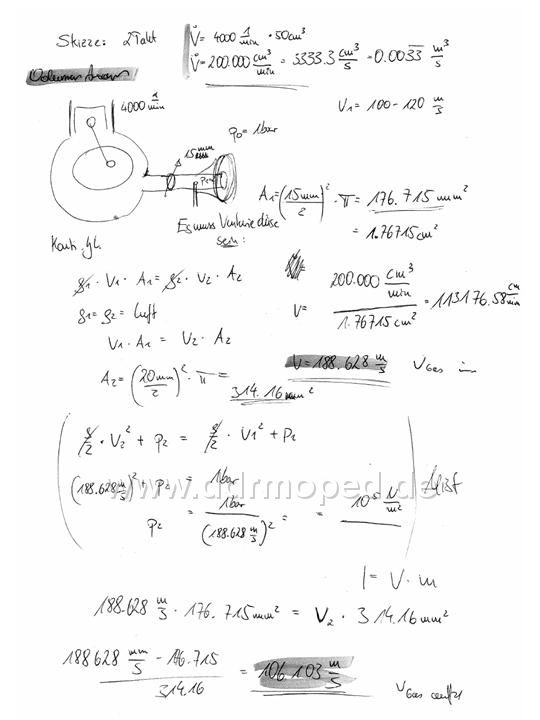 Skizze: 2Takt
V̇ = 4000 1/min · 50cm³
V̇ = 200.000 cm³/min = 3333.3 cm³/s = 0.0033 m³/s
Volumenstrom
4000 1/min
V1 = 100-120 m/s
p0 = 1bar
15mm
A1 = (15mm/2)² · π = 176.715 mm²
= 1.76715 cm²
Es muss Venturiedüse
sein:
Konti. gl.
ρ1 · V1 · A1 = ρ2 · V2 · A2
ρ1 = ρ2 = Luft
V1 · A1 = V2 · A2
V = 200.000 cm³/min / 1.76715 cm² = 113176.58 cm/min
V = 188.628 m/s VGas im
A2 = (20mm/2)² · π = 314.16 mm²
ρ/2 · V2² + p2 = ρ/2 · V1² + P2
(188.628 m/s)² + P2 = 1bar
p2 = 1bar / (188.628 m/s)² = = 10⁵ N/m²
Mist
www.ddrmoped.de
l = V · m
188.628 m/s · 176.715mm² = V2 · 314.16mm²
188628 mm/s - 176.715 / 314.16 = 106.103 m/s
VGas